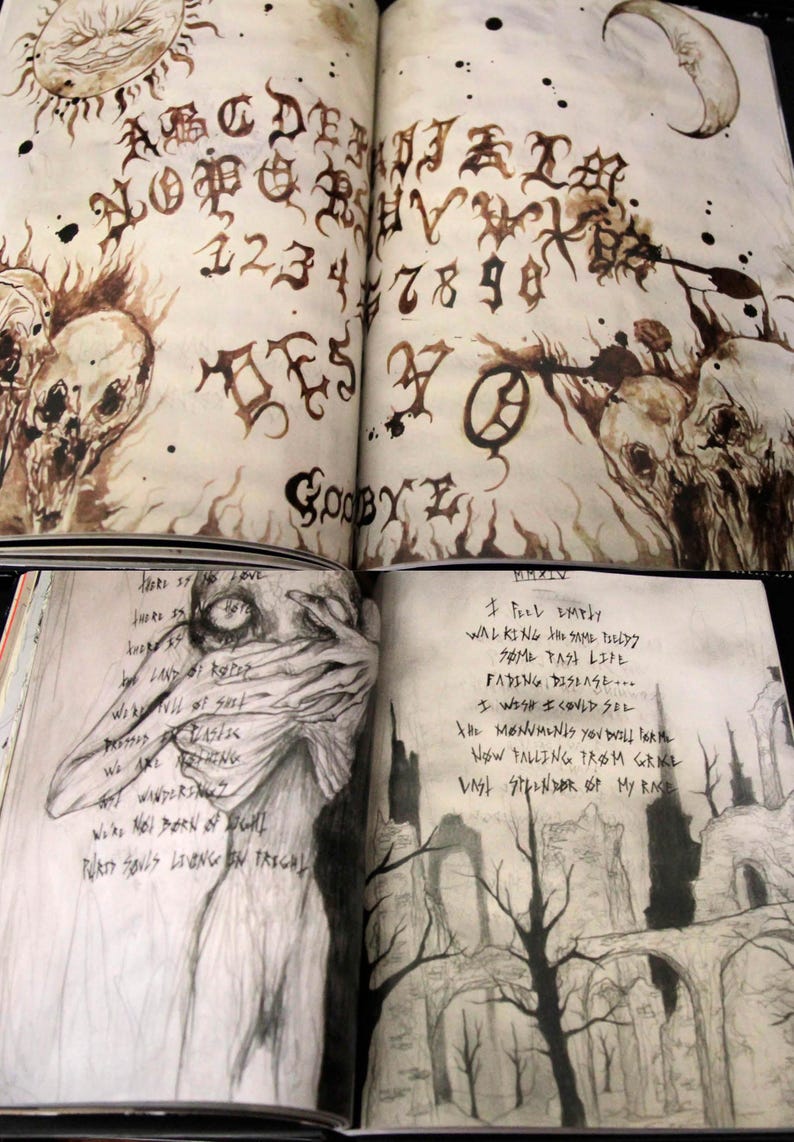 ABCDEF HIJKLM
NOPQRS UVWXYZ
1234 7890
DES
GOODBYE
THERE IS NO LØVE
THERE IS NO HOPE
THERE IS
THE LAND OF ROPES
WE'RE FULL OF SHIT
DRESSED IN PLASTIC
WE ARE NOTHING
WANDERINGS
WE'RE NOT BØRN OF LIGHT
SØULS LIVING IN FRIGHT
MMXIV
I FEEL EMPTY
WALKING THE SAME FIELDS
SØME PAST LIFE
FADING DISEASE...
I WISH I COULD SEE
THE MØNUMENTS YOU BUILT FØR ME
NØW FALLING FRØM GRACE
LAST SPLENDØR ØF MY RACE